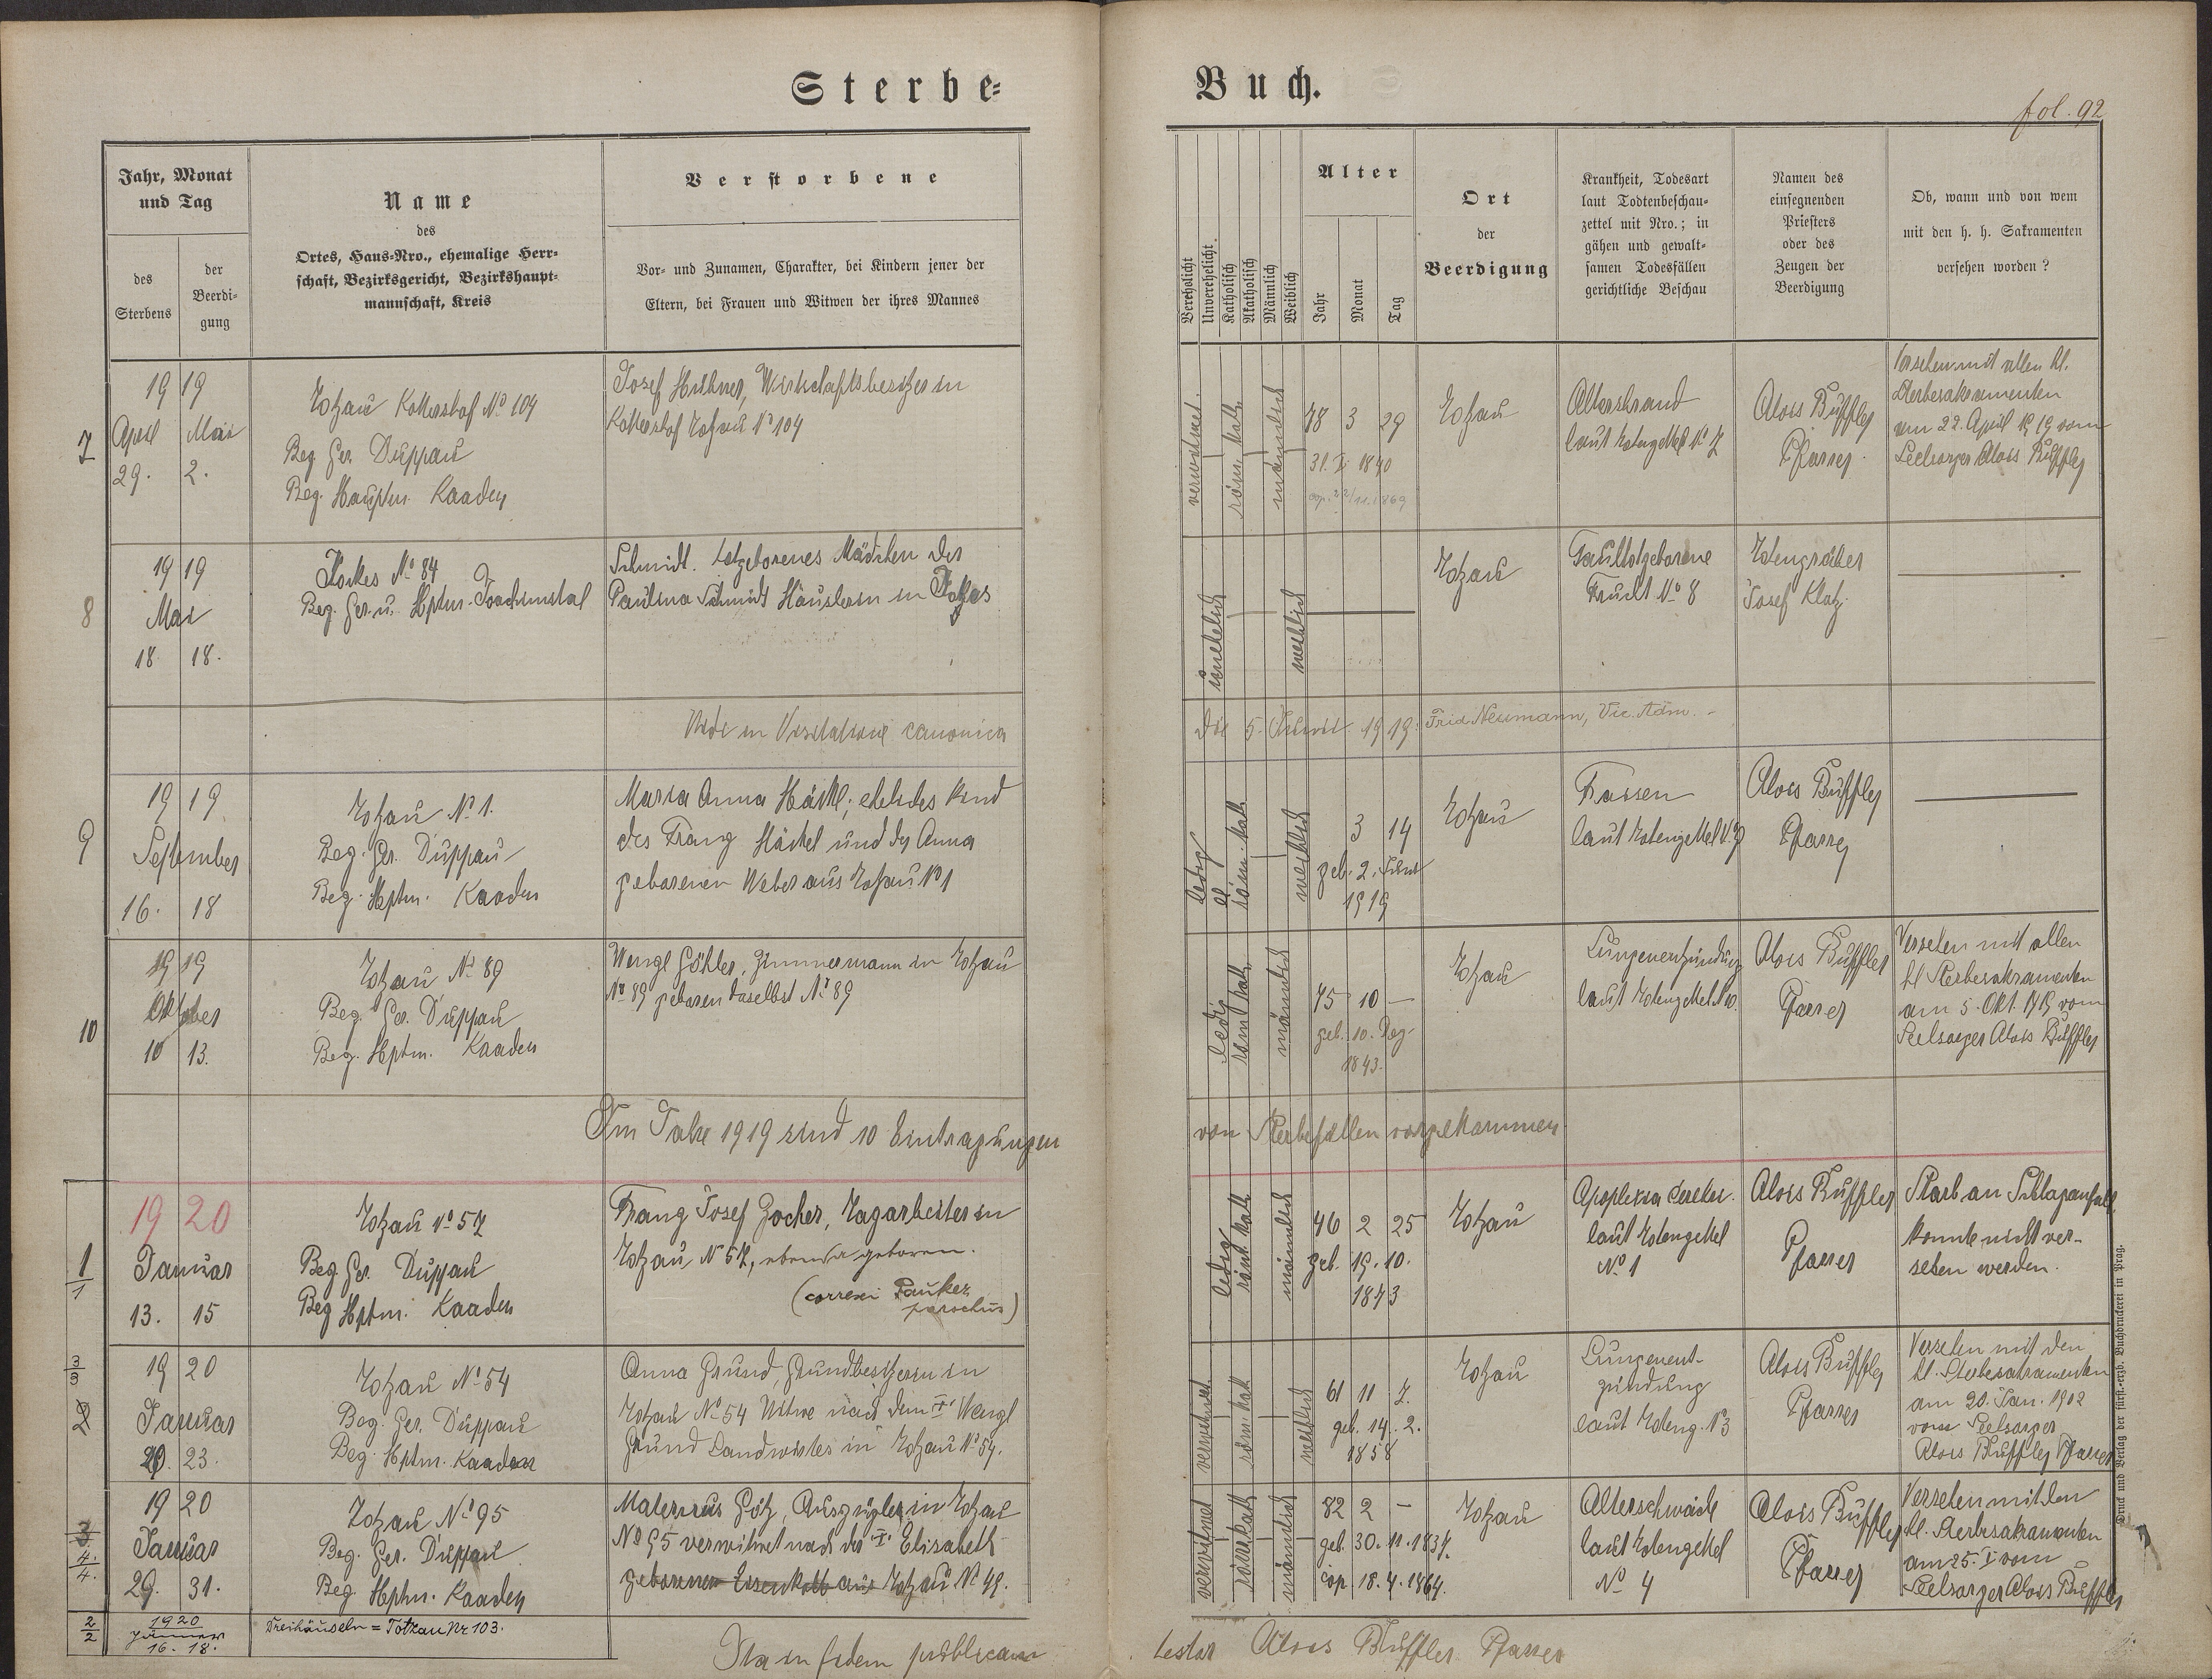 Sterbe=
Buch.
fol. 92
Jahr, Monat
und Tag
des
Sterbens
der
Beerdi-
gung
Name
des
Ortes, Haus-Nro., ehemalige Herr-
schaft, Bezirksgericht, Bezirkshaupt-
mannschaft, Kreis
Verstorbene
Vor- und Zunamen, Charakter, bei Kindern jener der
Eltern, bei Frauen und Witwen der ihres Mannes
Verehelicht
Unverehelicht
Katholisch
Akatholisch
Männlich
Weiblich
Alter
Jahr
Monat
Tag
Ort
der
Beerdigung
Krankheit, Todesart
laut Todtenbeschau-
zettel mit Nro.; in
gähen und gewalt-
samen Todesfällen
gerichtliche Beschau
Namen des
einsegnenden
Priesters
oder des
Zeugen der
Beerdigung
Ob, wann und von wem
mit den h. h. Sakramenten
versehen worden?
7
1919
April Mai
29. 2.
Totzau Kottershof No 104
Bez. Ger. Duppau
Bez. Hauptm. Kaaden
Josef Hübner, Wirtschaftsbesitzer in
Kottershof Totzau No 104
verwitwet
röm. kath
männlich
78 3 29
31. 1840
cop. 22/11. 1869
Totzau
Altersbrand
laut Totenzettel No 7
Alois Büffler
Pfarrer
Versehen mit allen hl.
Sterbesakramenten
am 22. April 1919 vom
Seelsorger Alois Büffler
8
1919
Mai
18 18.
No 84
Bez. Ger. u. Hptm. Joachimstal
Schmidt. totgeborenes Mädchen der
Paulina Schmidt Häuslerin in
unehelich
weiblich
Totzau
Faultotgeborene
Frucht No 8
Totengräber
Josef Klotz
Vidi in Visitatione canonica
die 5. 1919. Frid Neumann, Vic. Adm.
9
1919
September
16. 18
Totzau No 1.
Bez. Ger. Duppau
Bez. Hptm. Kaaden
Maria Anna Häckl; eheliches Kind
des Franz Häckel und der Anna
geborenen Weber aus Totzau No 1
ledig
röm. kath
weiblich
3 14
geb. 2. Juni
1919
Totzau
Fraisen
laut Totenzettel No 9
Alois Büffler
Pfarrer
10
1919
Oktober
10 13.
Totzau No 89
Bez. Ger. Duppau
Bez. Hptm. Kaaden
Wenzl Göhler, Zimmermann in Totzau
No 89 geboren daselbst No 89
ledig
röm kath.
männlich
75 10 —
geb. 10. Dez.
1843.
Totzau
Lungenentzündung
laut Totenzettel No 10.
Alois Büffler
Pfarrer
Versehen mit allen
hl Sterbesakramenten
am 5. Okt. 1919 vom
Seelsorger Alois Büffler
Im Jahre 1919 sind 10 Eintragungen
von Sterbefällen vorgekommen
1
1
1920
Januar
13. 15
Totzau No 57
Bez. Ger. Duppau
Bez Hptm. Kaaden
Franz Josef Zocher, Tagarbeiter in
Totzau No 57, ebenda geboren.
(correxi Pauker
parochus)
ledig
röm kath
männlich
46 2 25
geb. 19. 10.
1873
Totzau
Apoplexia cerebri.
laut Totenzettel
No 1
Alois Büffler
Pfarrer
Starb an Schlaganfall,
konnte nicht ver-
sehen werden.
3
3
2
1920
Januar
20. 23.
Totzau No 54
Bez. Ger. Duppau
Bez. Hptm. Kaaden
Anna Grund, Grundbesitzerin in
Totzau No 54 Witwe nach dem † Wenzl
Grund Landwirtes in Totzau No 54.
verwitwet
röm. kath
weiblich
61 11 7.
geb. 14. 2.
1858
Totzau
Lungenent-
zündung
laut Totenz. No 3
Alois Büffler
Pfarrer
Versehen mit den
hl. Sterbesakramenten
am 20. Jan. 1902
vom Seelsorger
Alois Büffler Pfarrer
3
4.
4.
1920
Januar
29. 31.
Totzau No 95
Bez. Ger. Duppau
Bez. Hptm. Kaaden
Maternus Götz, Auszügler in Totzau
No 95 verwitwet nach der † Elisabeth
geborenen Eisenkolb aus Totzau No 49.
verwitwet
röm. kath
männlich
82 2 —
geb. 30. 11. 1837.
cop. 18. 4. 1864.
Totzau
Altersschwäche
laut Totenzettel
No 4
Alois Büffler
Pfarrer
Versehen mit den
hl. Sterbesakramenten
am 25. I vom
Seelsorger Alois Büffler
2
2
1920
Jänner
16. 18.
Dreihäuseln = Totzau Nr 103.
Ita in fidem publicam
testor Alois Büffler Pfarrer
Druck und Verlag der fürst.-erzb. Buchdruckerei in Prag.